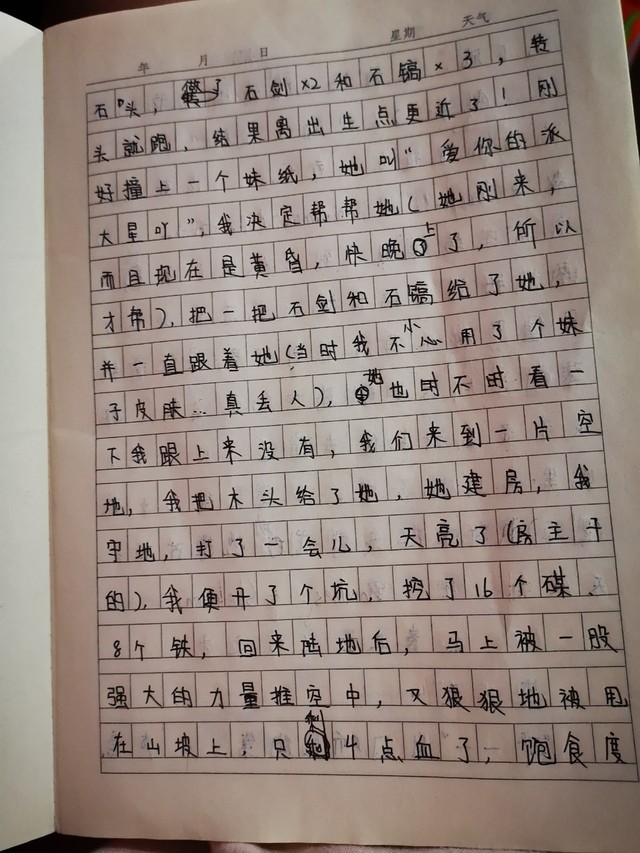 年 月 日 星期 天气
石头，做了石剑×2和石镐×3，转
头就跑，结果离出生点更近了！刚
好撞上一个妹纸，她叫“爱你的派
大星吖”，我决定帮帮她（她刚来，
而且现在是黄昏，快晚上了，所以
才帮），把一把石剑和石镐给了她，
并一直跟着她（当时我不小心用了个妹
子皮肤…真丢人），她也时不时看一
下我跟上来没有，我们来到一片空
地，我把木头给了她，她建房，我
守地，打了一会儿，天亮了（房主干
的），我便开了个坑，挖了16个碟、
8个铁，回来陆地后，马上被一股
强大的力量推空中，又狠狠地被甩
在山坡上，只剩4点血了，饱食度